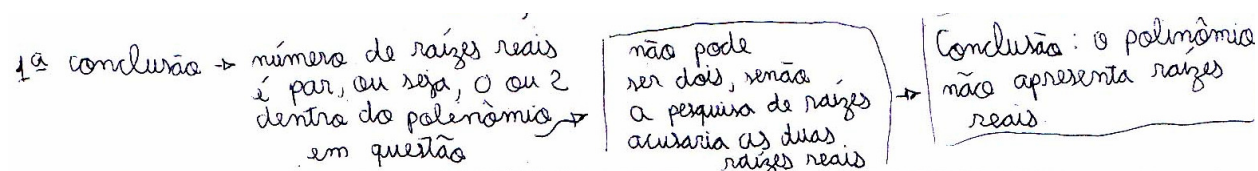 1ª conclusão → número de raízes reais
é par, ou seja, 0 ou 2
dentro do polinômio
em questão →
não pode
ser dois, senão
a pesquisa de raízes
acusaria as duas
raízes reais
→
Conclusão: o polinômio
não apresenta raízes
reais.